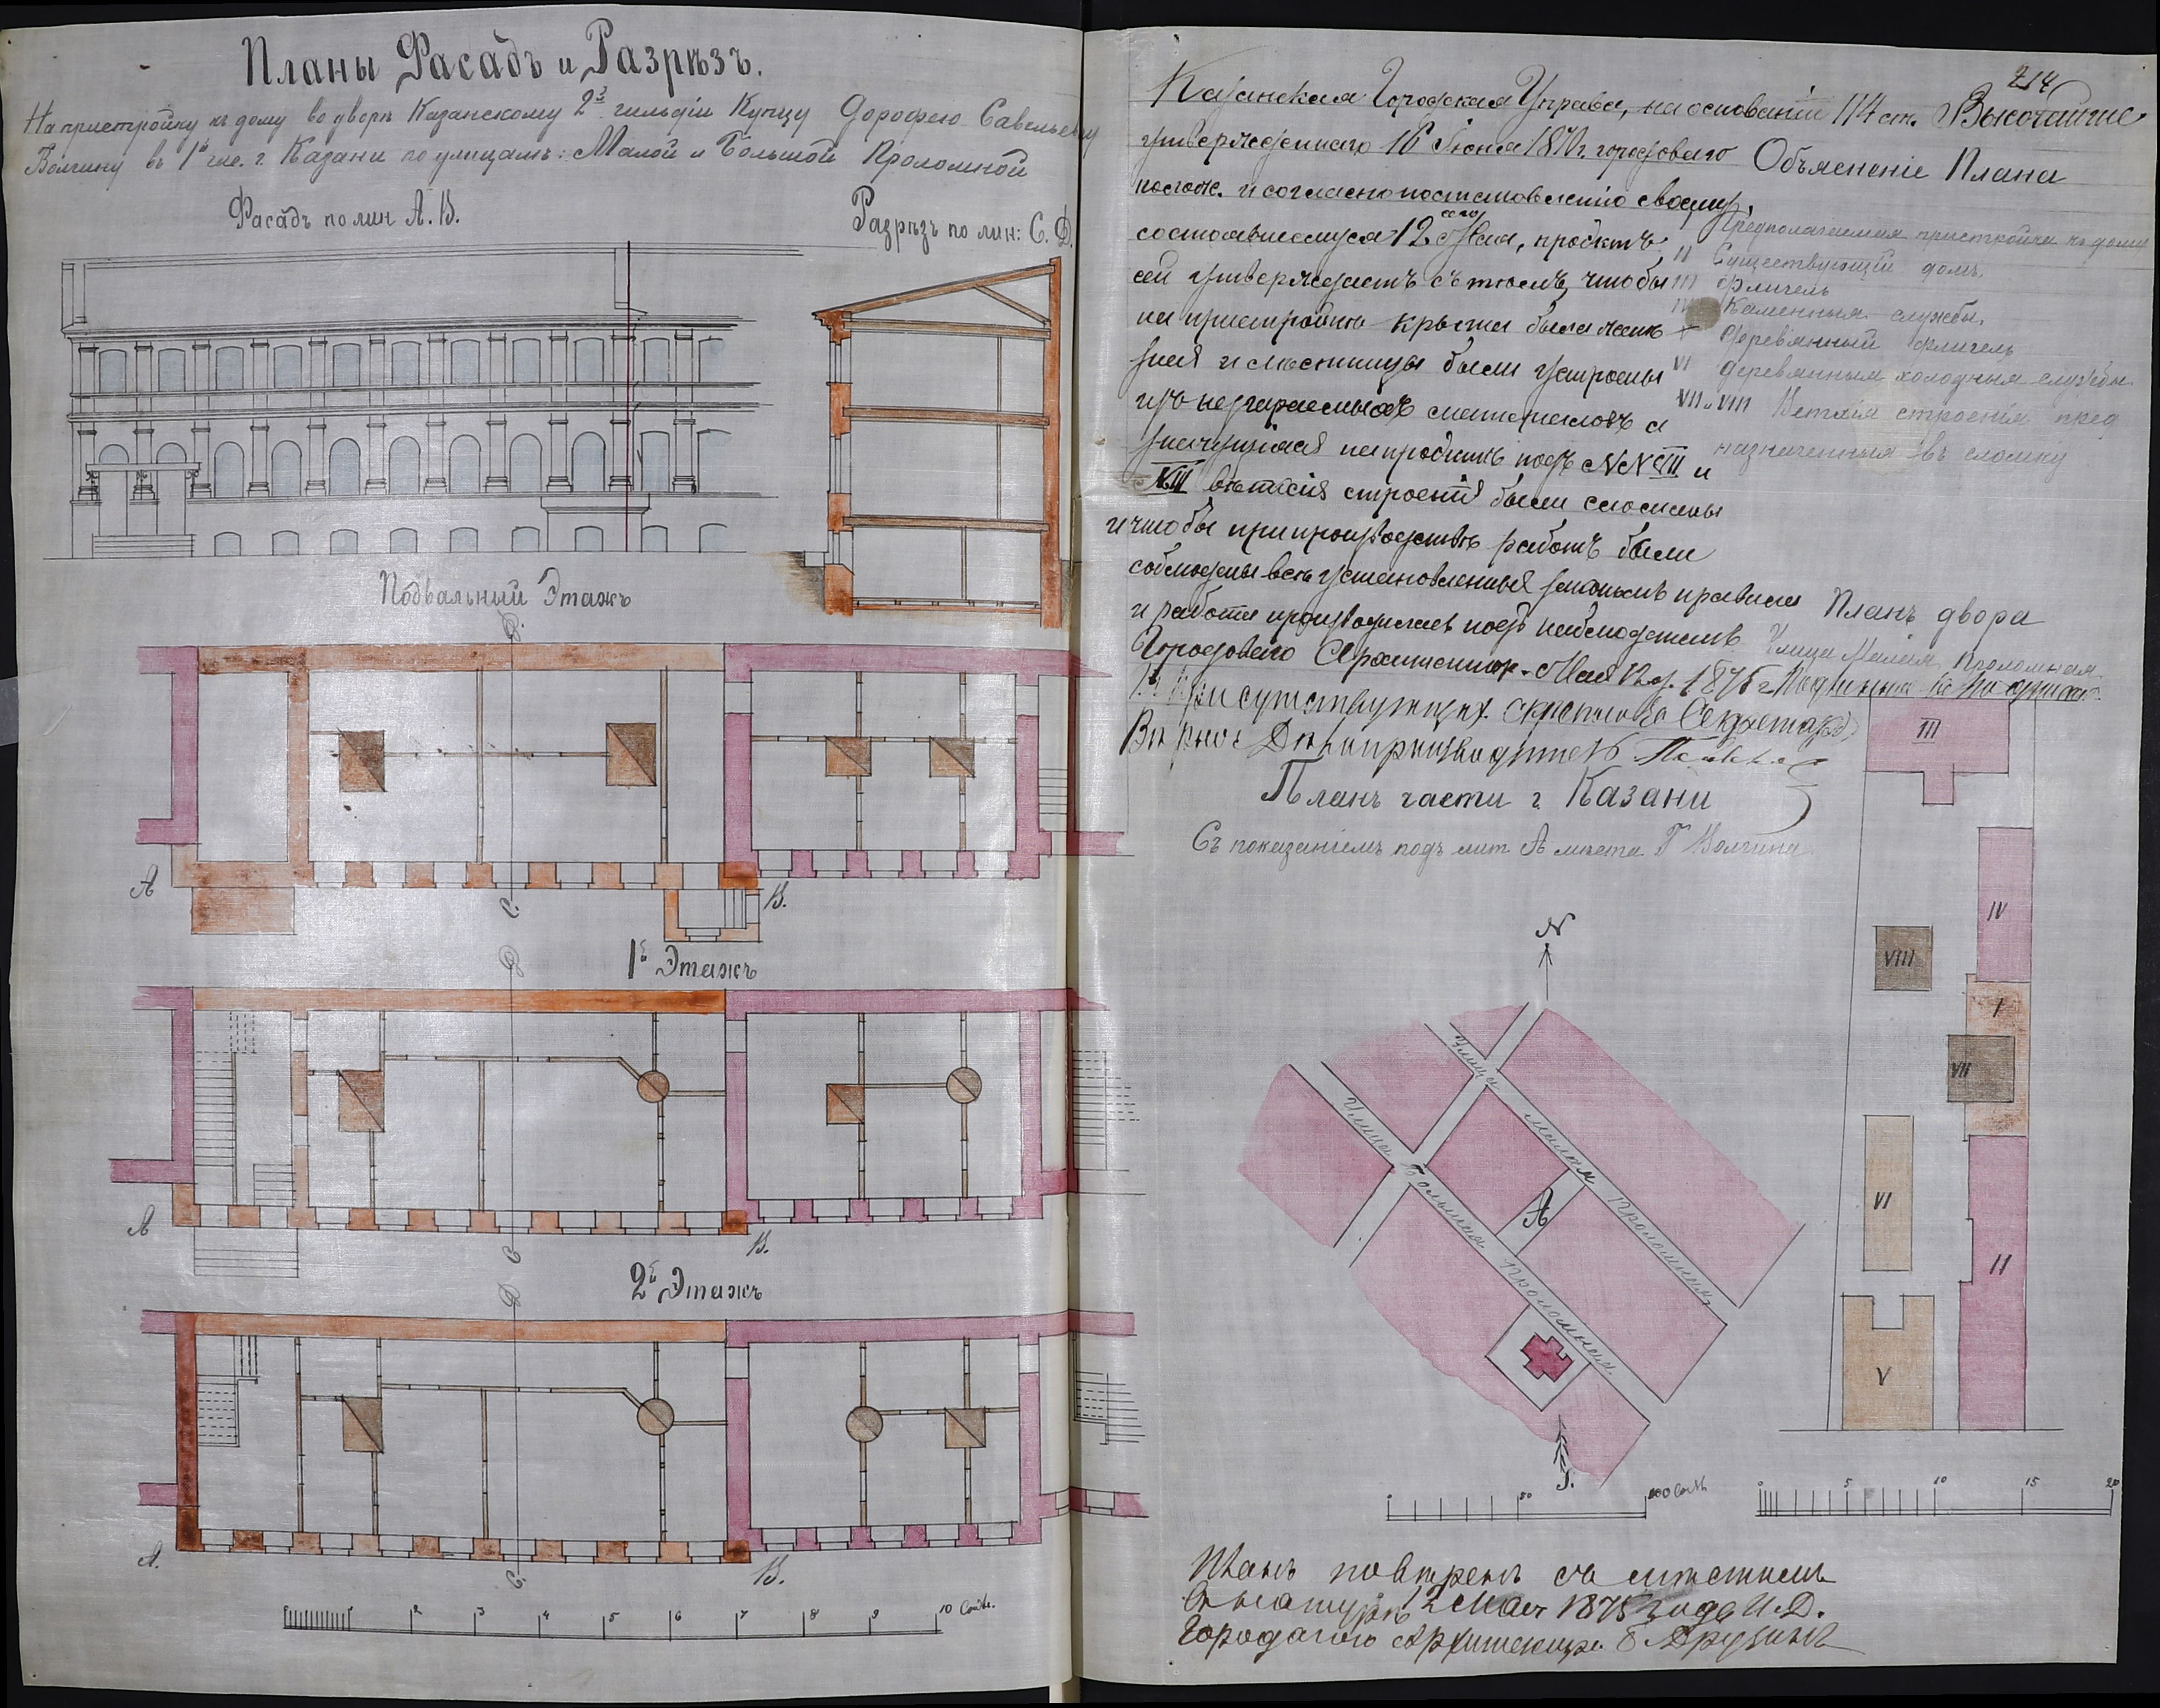 Планы Фасадъ и Разрѣзъ.
На пристройку къ дому во дворѣ Казанскому 2й гильдіи Купцу Дорофею Савельеву
Волгину въ 1й час. г. Казани по улицамъ: Малой и Большой Проломной
Фасадъ по лин А. В.
Разрѣзъ по лин: С. Д.
Подвальный Этажъ
Д.
А
С.
В.
1й Этажъ
Д
А
С
В.
2й Этажъ
Д
А.
С.
В.
1 2 3 4 5 6 7 8 9 10 Саже.
214
Казанская Городская Управа, на основаніи 114 ст. Высочайше
утвержденнаго 16 Іюня 1870 г. городоваго
полож. и согласно постановленію своему,
состоявшемуся 12 сего Мая, проэктъ
сей утверждаетъ съ тѣмъ, чтобы
на пристройкѣ крыша была желѣ
зная и лѣстницы были устроены
изъ несгараемыхъ матеріаловъ а
значущіяся на проэктѣ подъ №№ VII и
VIII ветхія строенія были сломаны
и чтобы при производствѣ работъ были
соблюдены всѣ установленныя закономъ правила
и работы производились подъ наблюденіемъ
Городоваго Архитектора. Мая 12 д. 1875 г. Подлинное за подписа:
присутствующихъ скрѣпило за Секретаря
Вѣрно: Дѣлопроизводитель
Объясненіе Плана
Предполагаемая пристройка къ дому
II Существующій домъ.
III Флигель
IV Каменныя службы.
V Деревянный флигель
VI Деревянныя холодныя службы
VII и VIII Ветхія строенія пред
назначенныя въ сломку
Планъ двора
Улица Малая Проломная
III
IV
VIII
I
VII
VI
II
V
5 10 15 20
Планъ части г. Казани
Съ показаніемъ подъ лит А мѣста Г Волгина
N
Улица Малая Проломная
Улица Большая Проломная
А
50 100 Саж
Планъ повѣренъ съ мѣстныма
12 Мая 1875 года И.Д.
Городаваго Архитектора